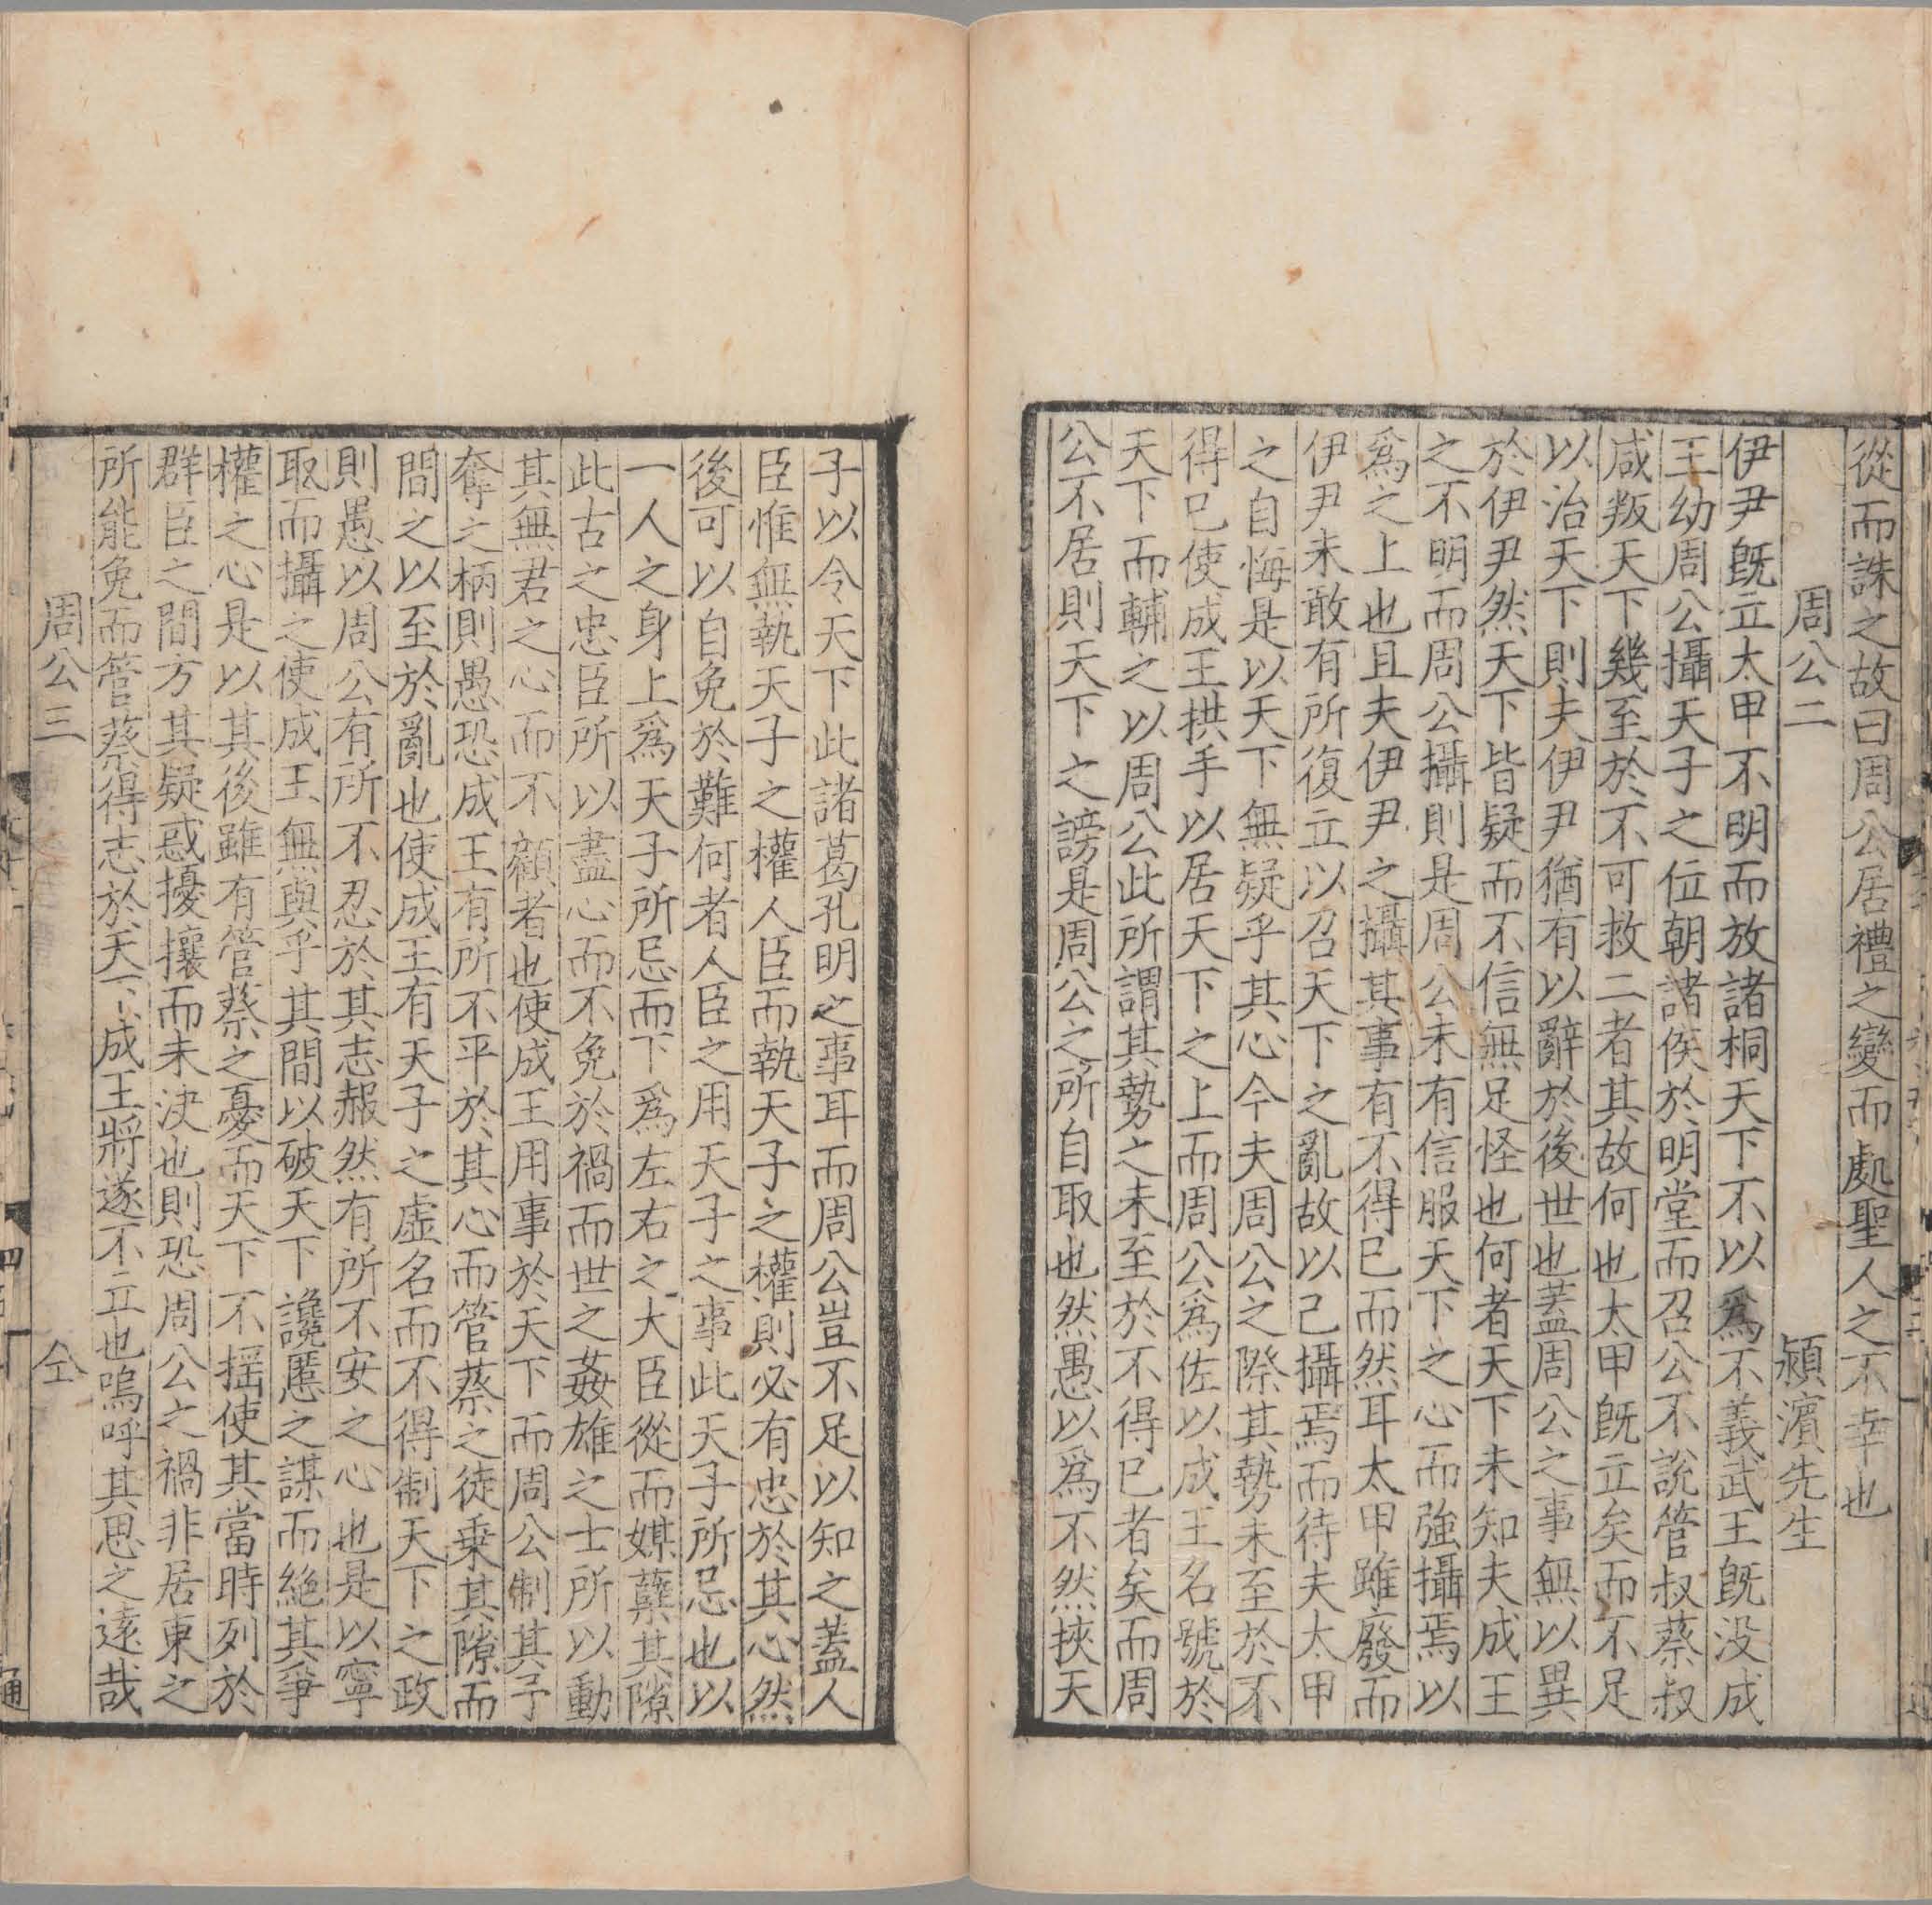 從而誅之故曰周公居禮之變而處聖人之不幸也
周公二 潁濱先生
伊尹旣立太甲不明而放諸桐天下不以爲不義武王旣没成
王幼周公攝天子之位朝諸侯於明堂而召公不說管叔蔡叔
咸叛天下幾至於不可救二者其故何也太甲旣立矣而不足
以治天下則夫伊尹猶有以辭於後世也蓋周公之事無以異
於伊尹然天下皆疑而不信無足怪也何者天下未知夫成王
之不明而周公攝則是周公未有信服天下之心而強攝焉以
爲之上也且夫伊尹之攝其事有不得已而然耳太甲雖廢而
伊尹未敢有所復立以召天下之亂故以己攝焉而待夫太甲
之自悔是以天下無疑乎其心今夫周公之際其勢未至於不
得已使成王拱手以居天下之上而周公爲佐以成王名號於
天下而輔之以周公此所謂其勢之未至於不得已者矣而周
公不居則天下之謗是周公之所自取也然愚以爲不然挾天
子以令天下此諸葛孔明之事耳而周公豈不足以知之蓋人
臣惟無執天子之權人臣而執天子之權則必有忠於其心然
後可以自免於難何者人臣之用天子之事此天子所忌也以
一人之身上爲天子所忌而下爲左右之大臣從而媒蘖其隙
此古之忠臣所以盡心而不免於禍而世之姦雄之士所以動
其無君之心而不顧者也使成王用事於天下而周公制其予
奪之柄則愚恐成王有所不平於其心而管蔡之徒乗其隙而
間之以至於亂也使成王有天子之虛名而不得制天下之政
則愚以周公有所不忍於其志赧然有所不安之心也是以寧
取而攝之使成王無與乎其間以破天下讒慝之謀而絶其爭
權之心是以其後雖有管蔡之憂而天下不揺使其當時列於
群臣之間方其疑惑擾攘而未決也則恐周公之禍非居東之
所能免而管蔡得志於天下成王將遂不立也嗚呼其思之遠哉
周公三 仝